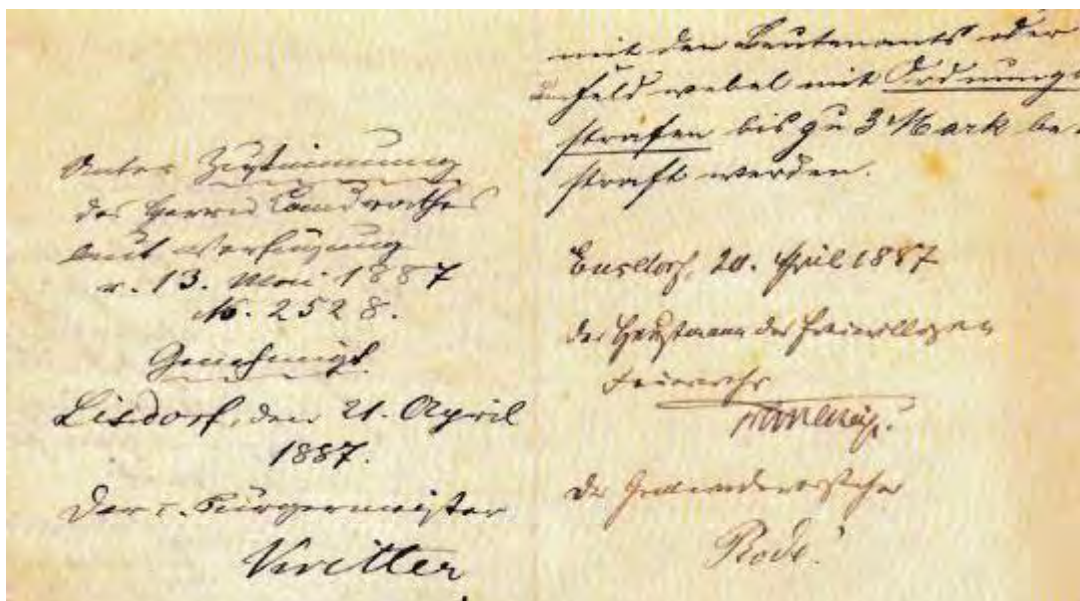 Unter Zustimmung
des Herrn Landrathes
laut Verfügung
v. 13. Mai 1887
No. 2528.
Genehmigt.
Lisdorf, den 21. April
1887.
Der c. Bürgermeister
mit den Leutenants oder
Feldwebel mit Ordnungs
strafen bis zu 3 Mark be-
straft werden.
Ensdorf, 20. April 1887
Der Hauptmann der freiwilligen
Feuerwehr
Der Gemeindevorsteher
Rode.